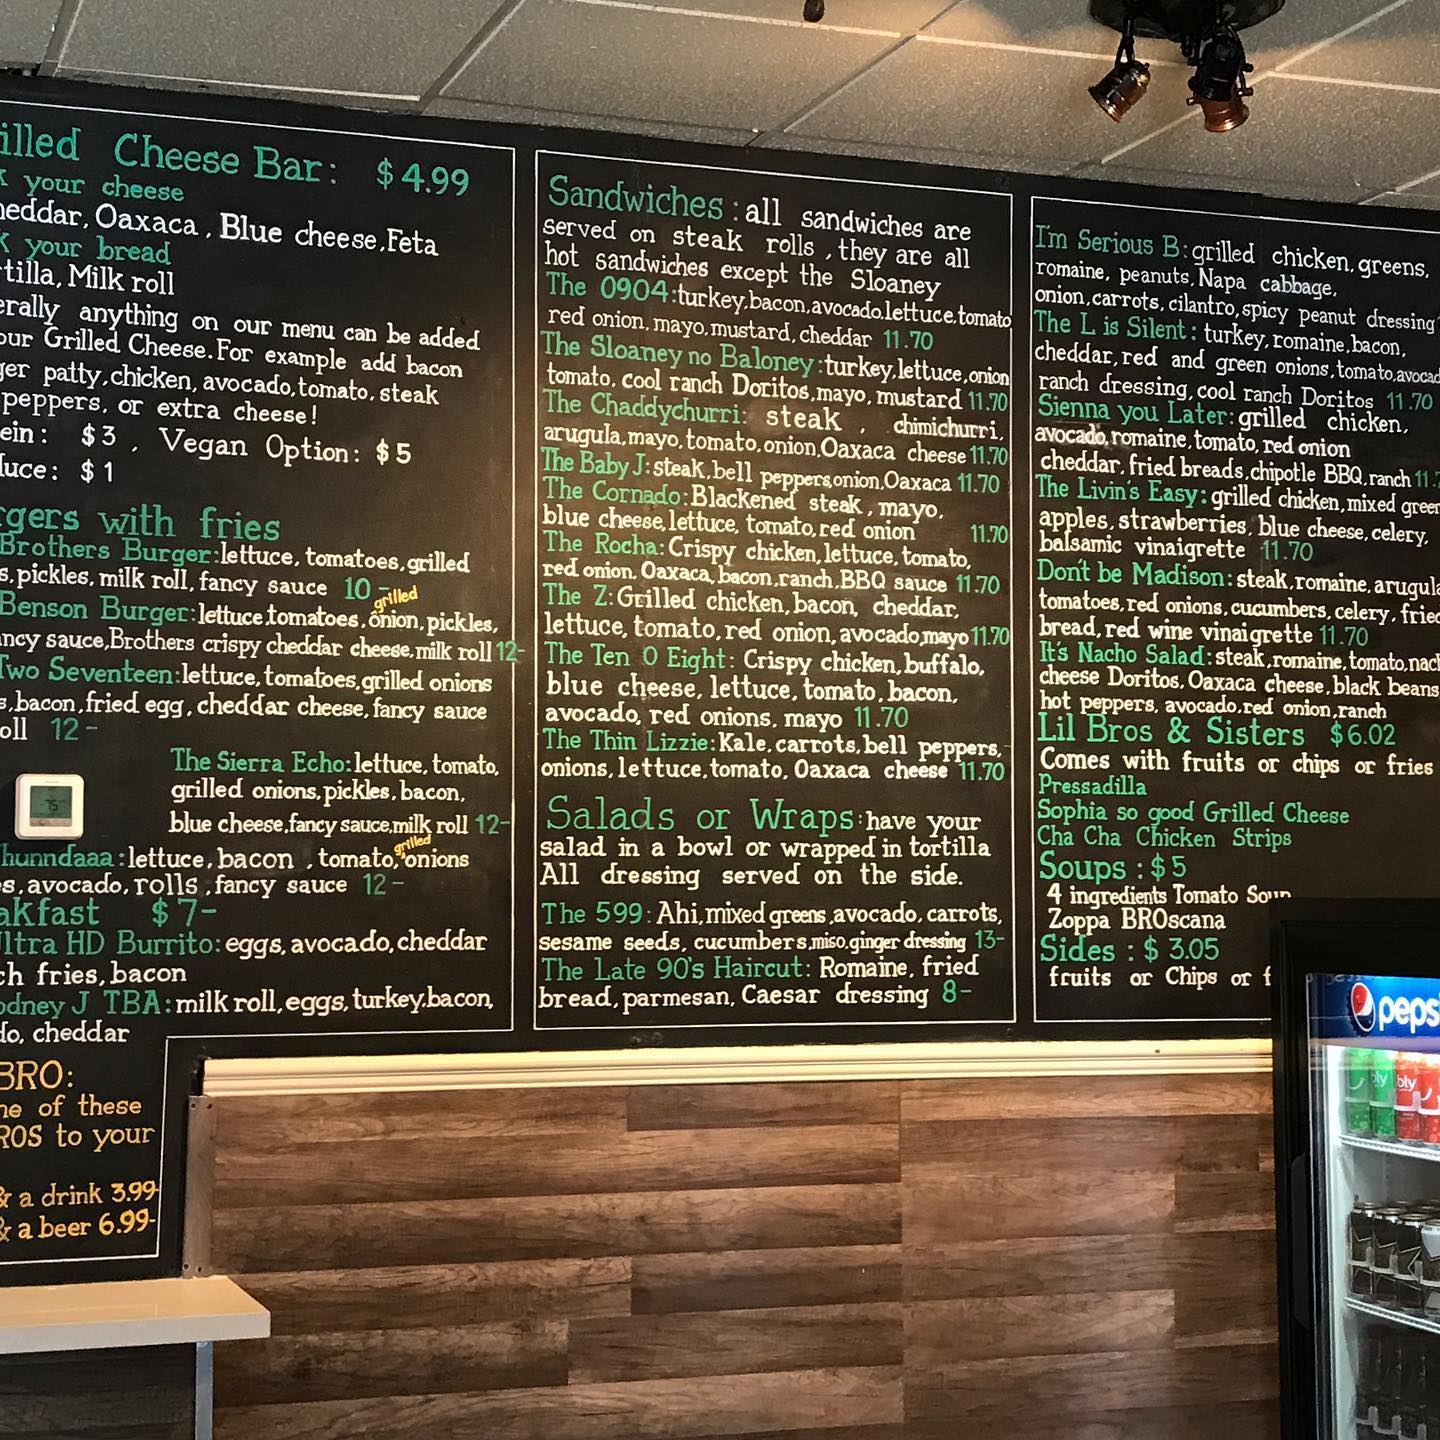 illed Cheese Bar: $4.99
k your cheese
heddar, Oaxaca, Blue cheese, Feta
k your bread
rtilla, Milk roll
erally anything on our menu can be added
our Grilled Cheese. For example add bacon
ger patty, chicken, avocado, tomato, steak
peppers, or extra cheese!
ein: $3, Vegan Option: $5
duce: $1
rgers with fries
Brothers Burger: lettuce, tomatoes, grilled
s, pickles, milk roll, fancy sauce 10-
grilled
Benson Burger: lettuce tomatoes, onion, pickles,
ancy sauce, Brothers crispy cheddar cheese, milk roll 12-
Two Seventeen: lettuce, tomatoes, grilled onions
s, bacon, fried egg, cheddar cheese, fancy sauce
oll 12-
The Sierra Echo: lettuce, tomato,
grilled onions, pickles, bacon,
blue cheese, fancy sauce, milk roll 12-
75
grilled
hunndaaa: lettuce, bacon, tomato, onions
es, avocado, rolls, fancy sauce 12-
akfast $7-
Ultra HD Burrito: eggs, avocado, cheddar
ch fries, bacon
odney J TBA: milk roll, eggs, turkey, bacon,
do, cheddar
BRO:
ne of these
ROS to your
& a drink 3.99-
& a beer 6.99-
Sandwiches: all sandwiches are
served on steak rolls, they are all
hot sandwiches except the Sloaney
The 0904: turkey, bacon, avocado, lettuce, tomato
red onion, mayo, mustard, cheddar 11.70
The Sloaney no Baloney: turkey, lettuce, onion
tomato, cool ranch Doritos, mayo, mustard 11.70
The Chaddychurri: steak, chimichurri,
arugula, mayo, tomato, onion, Oaxaca cheese 11.70
The Baby J: steak, bell peppers, onion, Oaxaca 11.70
The Cornado: Blackened steak, mayo,
blue cheese, lettuce, tomato, red onion 11.70
The Rocha: Crispy chicken, lettuce, tomato,
red onion, Oaxaca, bacon, ranch, BBQ sauce 11.70
The Z: Grilled chicken, bacon, cheddar,
lettuce, tomato, red onion, avocado, mayo 11.70
The Ten O Eight: Crispy chicken, buffalo,
blue cheese, lettuce, tomato, bacon,
avocado, red onions, mayo 11.70
The Thin Lizzie: Kale, carrots, bell peppers,
onions, lettuce, tomato, Oaxaca cheese 11.70
Salads or Wraps: have your
salad in a bowl or wrapped in tortilla
All dressing served on the side.
The 599: Ahi, mixed greens, avocado, carrots,
sesame seeds, cucumbers, miso, ginger dressing 13-
The Late 90's Haircut: Romaine, fried
bread, parmesan, Caesar dressing 8-
I'm Serious B: grilled chicken, greens,
romaine, peanuts, Napa cabbage,
onion, carrots, cilantro, spicy peanut dressing
The L is Silent: turkey, romaine, bacon,
cheddar, red and green onions, tomato, avocad
ranch dressing, cool ranch Doritos 11.70
Sienna you Later: grilled chicken,
avocado, romaine, tomato, red onion
cheddar, fried breads, chipotle BBQ, ranch 11.7
The Livin's Easy: grilled chicken, mixed green
apples, strawberries, blue cheese, celery,
balsamic vinaigrette 11.70
Don't be Madison: steak, romaine, arugula
tomatoes, red onions, cucumbers, celery, fried
bread, red wine vinaigrette 11.70
It's Nacho Salad: steak, romaine, tomato, nach
cheese Doritos, Oaxaca cheese, black beans
hot peppers, avocado, red onion, ranch
Lil Bros & Sisters $6.02
Comes with fruits or chips or fries
Pressadilla
Sophia so good Grilled Cheese
Cha Cha Chicken Strips
Soups: $5
4 ingredients Tomato Soup
Zoppa BROscana
Sides: $3.05
fruits or Chips or f
pepsi
bly bly